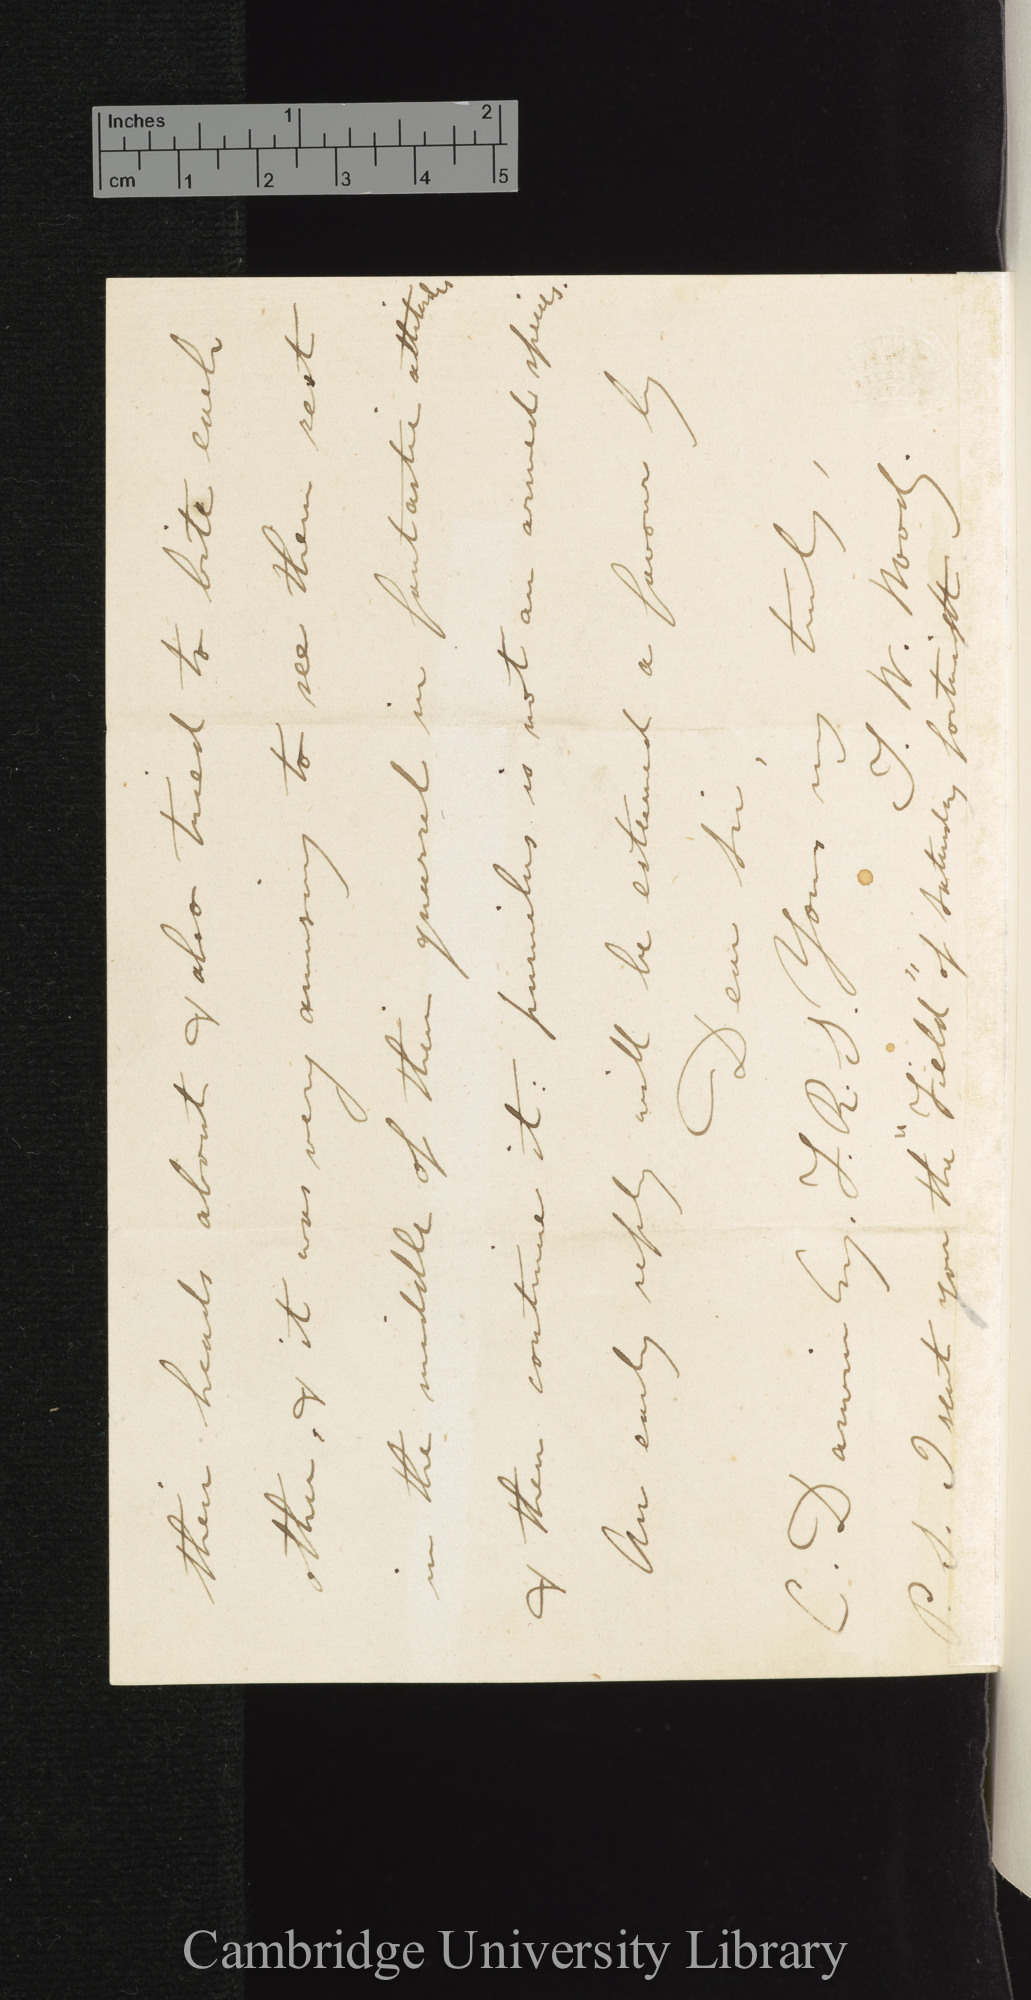 Inches 1 2
cm 1 2 3 4 5
their heads about & also tried to bite each
other, & it was very amusing to see them rest
in the middle of their quarrel in fantastic attitudes
& then continue it: pumilus is not an armed species.
An early reply will be esteemed a favour by
Dear Sir,
Yours very truly,
C. Darwin Esq. F.R.S. T. W. Wood.
P.S. I sent you the "Field" of Saturday fortnight
Cambridge University Library